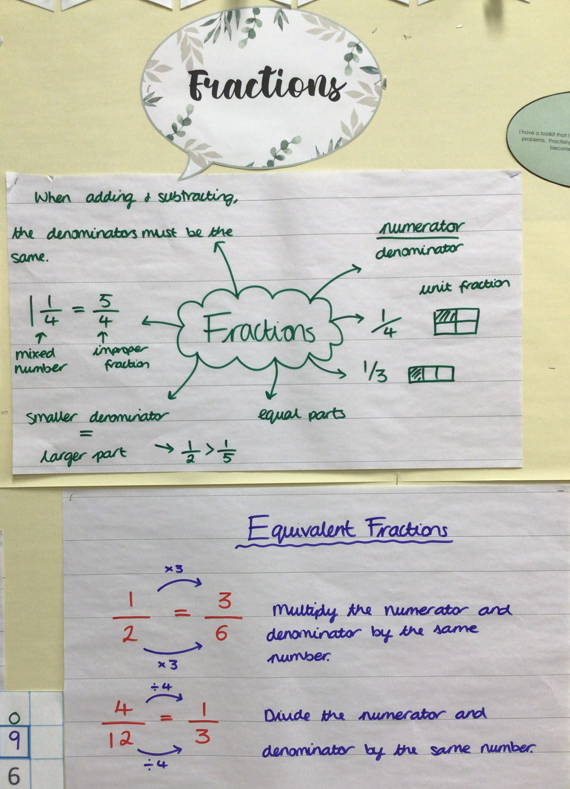 Fractions
I have a toolkit that I
problems. Practising
become
When adding & subtracting,
the denominators must be the
same.
numerator
denominator
unit fraction
1 1/4 = 5/4
mixed
number
improper
fraction
Fractions
1/4
1/3
smaller denominator
=
larger part → 1/2 > 1/5
equal parts
Equivalent Fractions
×3
1/2 = 3/6
×3
Multiply the numerator and
denominator by the same
number.
÷4
4/12 = 1/3
÷4
Divide the numerator and
denominator by the same number.
0
9
6